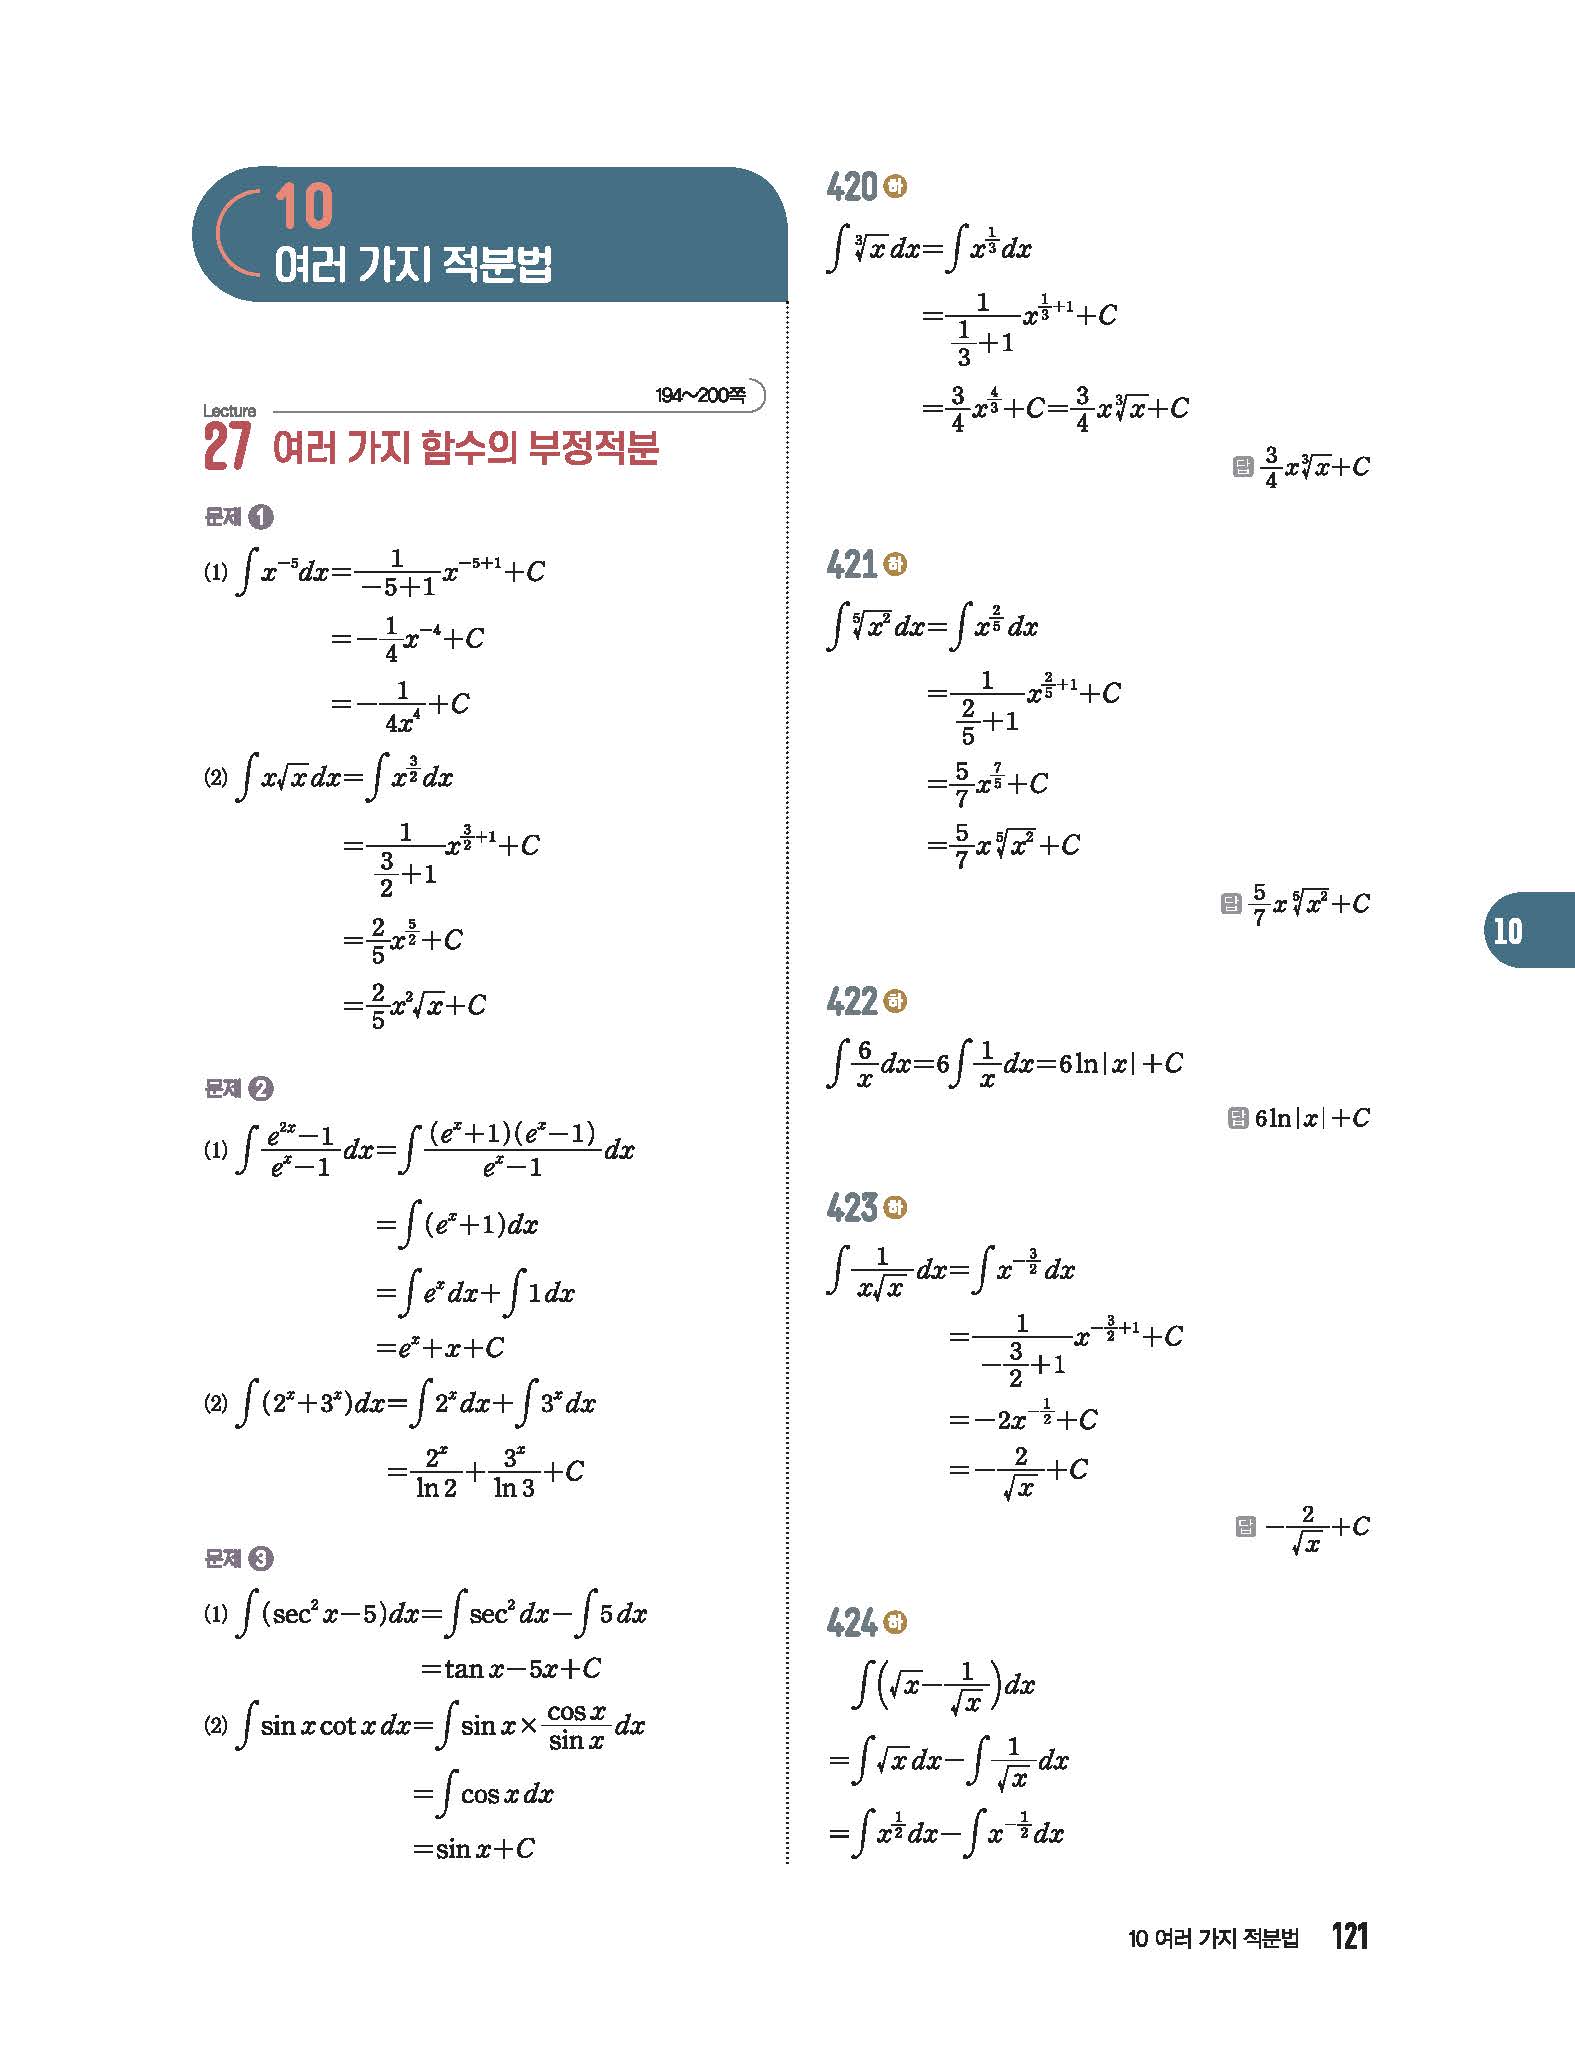 10
여러 가지 적분법
194~200쪽
Lecture
27 여러 가지 함수의 부정적분
문제 1
(1) ∫x⁻⁵dx=\frac{1}{-5+1}x^{-5+1}+C
=-\frac{1}{4}x^{-4}+C
=-\frac{1}{4x^4}+C
(2) ∫x√x dx=∫x^{\frac{3}{2}}dx
=\frac{1}{\frac{3}{2}+1}x^{\frac{3}{2}+1}+C
=\frac{2}{5}x^{\frac{5}{2}}+C
=\frac{2}{5}x^2√x+C
문제 2
(1) ∫\frac{e^{2x}-1}{e^x-1}dx=∫\frac{(e^x+1)(e^x-1)}{e^x-1}dx
=∫(e^x+1)dx
=∫e^x dx+∫1dx
=e^x+x+C
(2) ∫(2^x+3^x)dx=∫2^x dx+∫3^x dx
=\frac{2^x}{ln 2}+\frac{3^x}{ln 3}+C
문제 3
(1) ∫(sec² x-5)dx=∫sec² dx-∫5 dx
=tan x-5x+C
(2) ∫sin x cot x dx=∫sin x×\frac{cos x}{sin x}dx
=∫cos x dx
=sin x+C
420 하
∫∛x dx=∫x^{\frac{1}{3}}dx
=\frac{1}{\frac{1}{3}+1}x^{\frac{1}{3}+1}+C
=\frac{3}{4}x^{\frac{4}{3}}+C=\frac{3}{4}x∛x+C
답 \frac{3}{4}x∛x+C
421 하
∫\sqrt[5]{x^2}dx=∫x^{\frac{2}{5}}dx
=\frac{1}{\frac{2}{5}+1}x^{\frac{2}{5}+1}+C
=\frac{5}{7}x^{\frac{7}{5}}+C
=\frac{5}{7}x\sqrt[5]{x^2}+C
답 \frac{5}{7}x\sqrt[5]{x^2}+C
422 하
∫\frac{6}{x}dx=6∫\frac{1}{x}dx=6 ln|x|+C
답 6 ln|x|+C
423 하
∫\frac{1}{x√x}dx=∫x^{-\frac{3}{2}}dx
=\frac{1}{-\frac{3}{2}+1}x^{-\frac{3}{2}+1}+C
=-2x^{-\frac{1}{2}}+C
=-\frac{2}{√x}+C
답 -\frac{2}{√x}+C
424 하
∫(√x-\frac{1}{√x})dx
=∫√x dx-∫\frac{1}{√x}dx
=∫x^{\frac{1}{2}}dx-∫x^{-\frac{1}{2}}dx
10
10 여러 가지 적분법 121